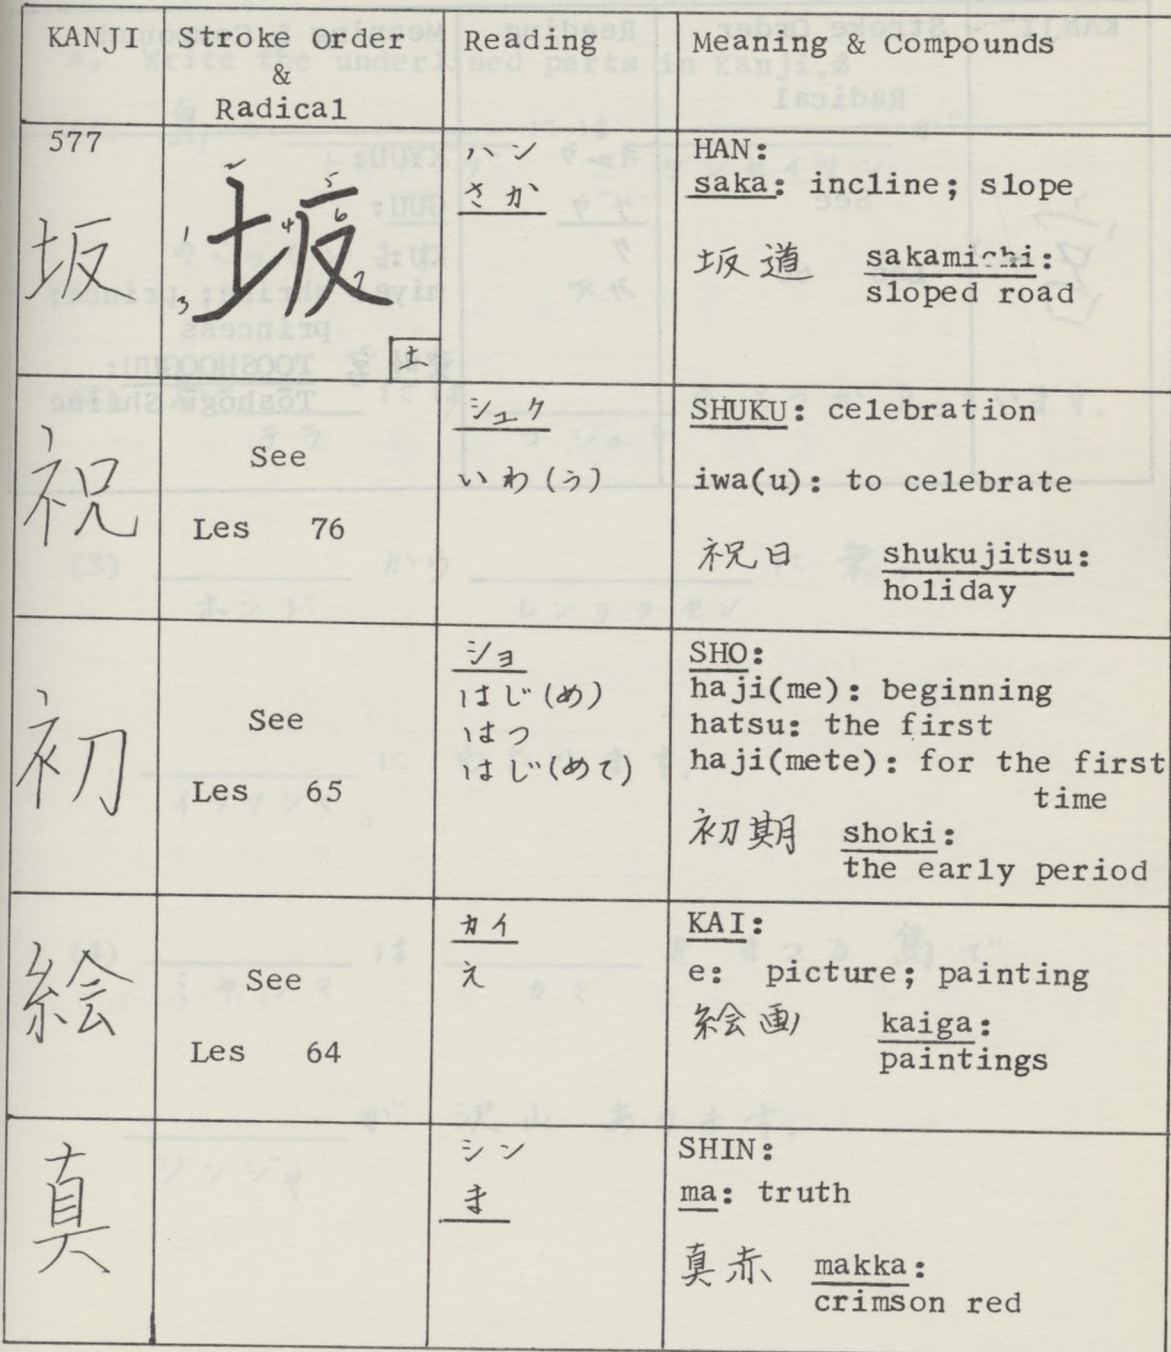 KANJI Stroke Order & Radical Reading Meaning & Compounds
577
坂
1 2 3 4 5 6 7
坂
土
ハン
さか
HAN:
saka: incline; slope
坂道 sakamichi:
sloped road
祝
See
Les 76
シュク
いわ(う)
SHUKU: celebration
iwa(u): to celebrate
祝日 shukujitsu:
holiday
初
See
Les 65
ショ
はじ(め)
はつ
はじ(めて)
SHO:
haji(me): beginning
hatsu: the first
haji(mete): for the first
time
初期 shoki:
the early period
絵
See
Les 64
カイ
え
KAI:
e: picture; painting
絵画 kaiga:
paintings
真
シン
ま
SHIN:
ma: truth
真赤 makka:
crimson red